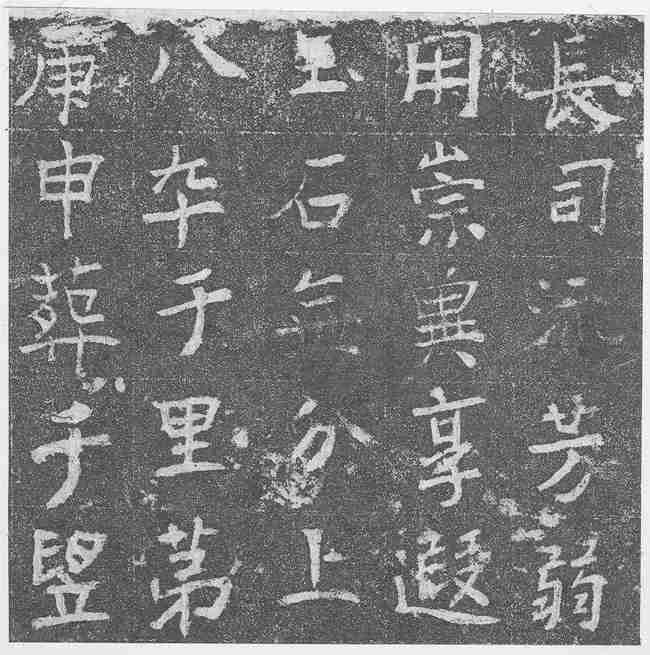 長司流芳弱
用崇冀享遐
玉石無分上
八卆于里第
庚申葬于竪